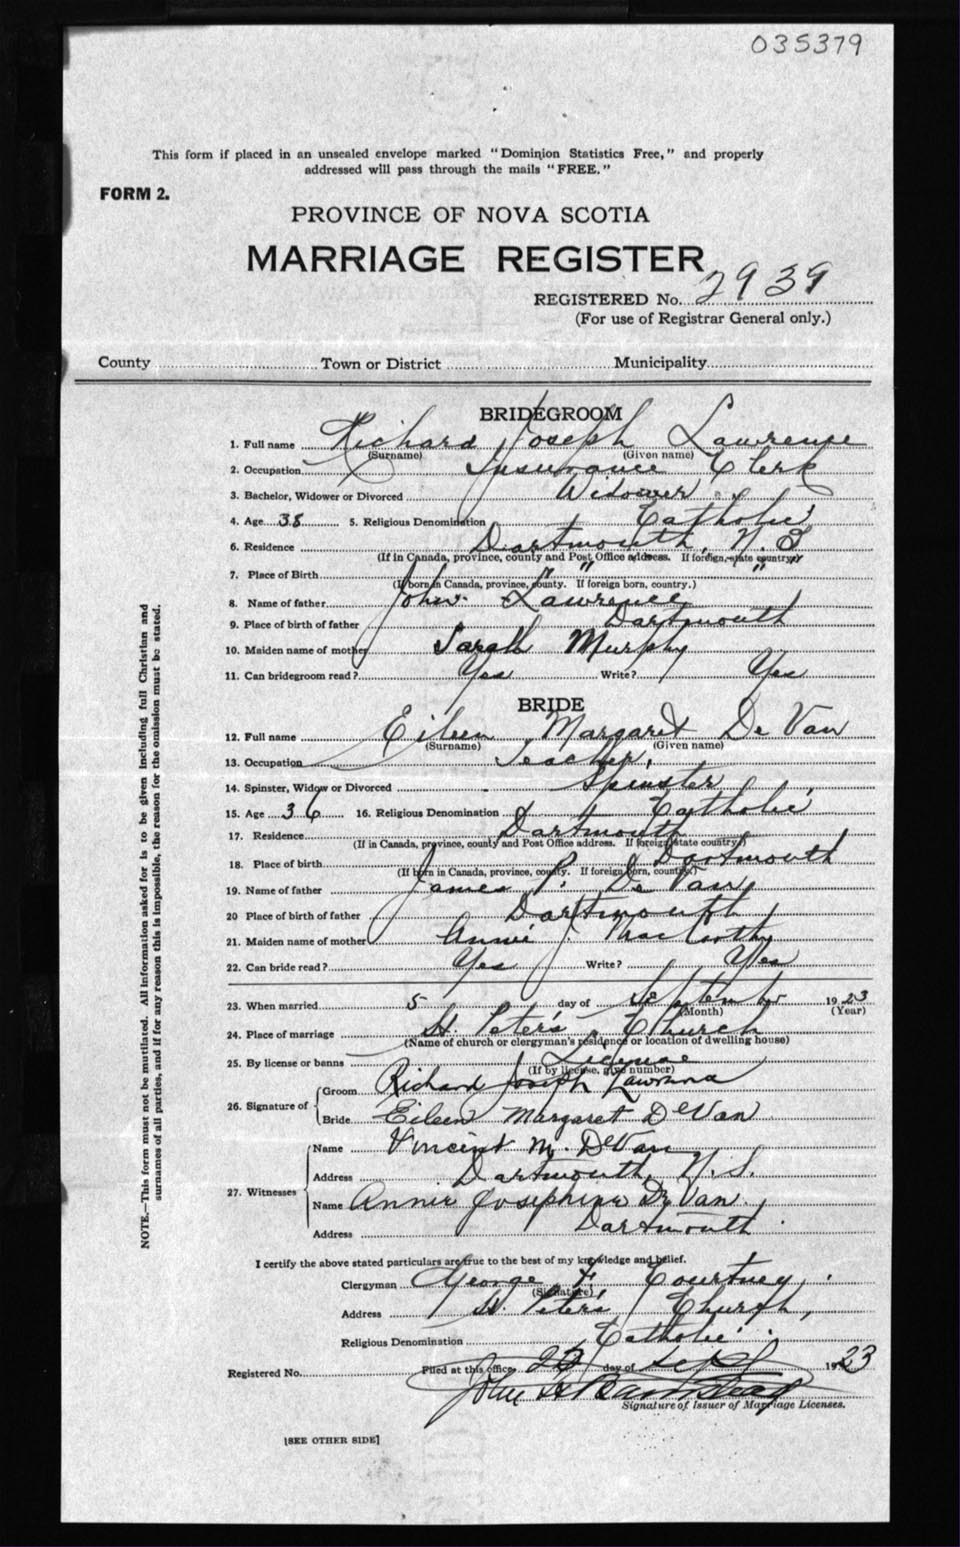 035379
This form if placed in an unsealed envelope marked "Dominion Statistics Free," and properly
addressed will pass through the mails "FREE."
FORM 2.
PROVINCE OF NOVA SCOTIA
MARRIAGE REGISTER
REGISTERED No. 2939
(For use of Registrar General only.)
County Town or District Municipality
BRIDEGROOM
1. Full name Richard Joseph Lawrence
(Surname) (Given name)
2. Occupation Insurance Clerk
3. Bachelor, Widower or Divorced Widower
4. Age 38 5. Religious Denomination Catholic
6. Residence Dartmouth, N.S
(If in Canada, province, county and Post Office address. If foreign, state country)
7. Place of Birth " " "
(If born in Canada, province, county. If foreign born, country.)
8. Name of father John Lawrence
9. Place of birth of father Dartmouth
10. Maiden name of mother Sarah Murphy
11. Can bridegroom read? Yes Write? Yes
BRIDE
12. Full name Eileen Margaret De Van
(Surname) (Given name)
13. Occupation Teacher.
14. Spinster, Widow or Divorced Spinster
15. Age 36 16. Religious Denomination Catholic
17. Residence Dartmouth
(If in Canada, province, county and Post Office address. If foreign, state country)
18. Place of birth Dartmouth
(If born in Canada, province, county. If foreign born, country.)
19. Name of father James P. De Van
20 Place of birth of father Dartmouth
21. Maiden name of mother Annie J. MacCarthy
22. Can bride read? Yes Write? Yes
23. When married 5 day of September 1923
(Month) (Year)
24. Place of marriage St. Peter's Church
(Name of church or clergyman's residence or location of dwelling house)
25. By license or banns License
(If by license, give number)
26. Signature of Groom Richard Joseph Lawrence
Bride Eileen Margaret DeVan
27. Witnesses Name Vincent M. DeVan
Address Dartmouth, N.S.
Name Annie Josephine De Van
Address Dartmouth
I certify the above stated particulars are true to the best of my knowledge and belief.
Clergyman George F. Courtney,
(Signature)
Address St. Peter's Church,
Religious Denomination Catholic
Registered No. Filed at this office day of Sept 1923
John
Signature of Issuer of Marriage Licenses.
[SEE OTHER SIDE]
NOTE.—This form must not be mutilated. All information asked for is to be given including full Christian and
surnames of all parties, and if for any reason this is impossible, the reason for the omission must be stated.